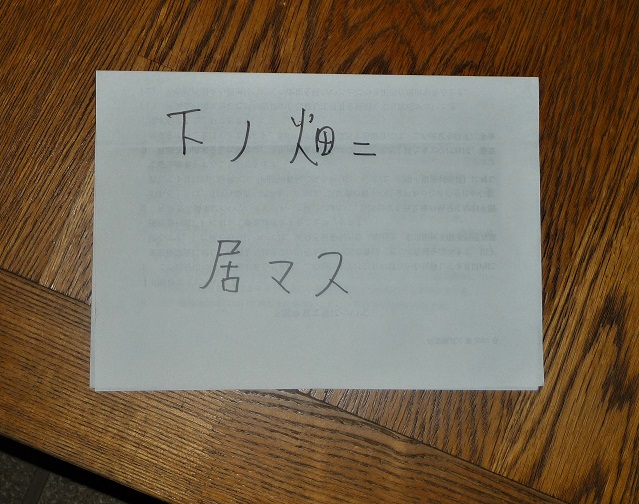 下ノ畑ニ
居マス